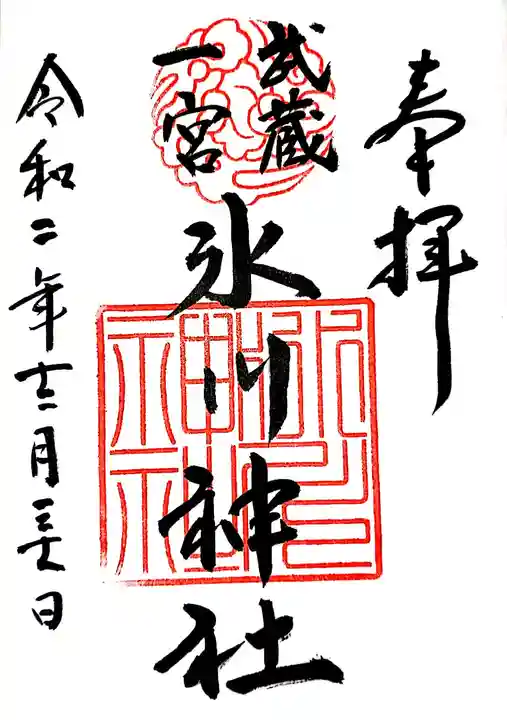 奉拝
武蔵
一宮
氷川神社
氷川
神社
令和二年十二月
日